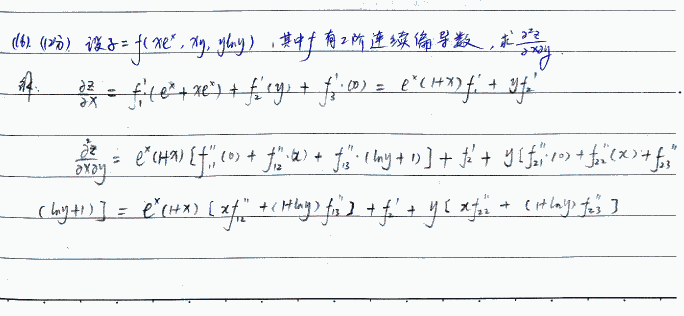 (16) (12分) 设z=f(xe^x, xy, ylny), 其中f有2阶连续偏导数, 求∂²z/∂x∂y.
解. ∂z/∂x = f₁'·(e^x+xe^x) + f₂'(y) + f₃'·(0) = e^x(1+x)f₁' + yf₂'
∂²z/∂x∂y = e^x(1+x)[f₁₁''(0) + f₁₂''·(x) + f₁₃''·(lny+1)] + f₂' + y[f₂₁''·(0) + f₂₂''(x) + f₂₃''
(lny+1)] = e^x(1+x)[xf₁₂'' + (1+lny)f₁₃''] + f₂' + y[xf₂₂'' + (1+lny)f₂₃'']